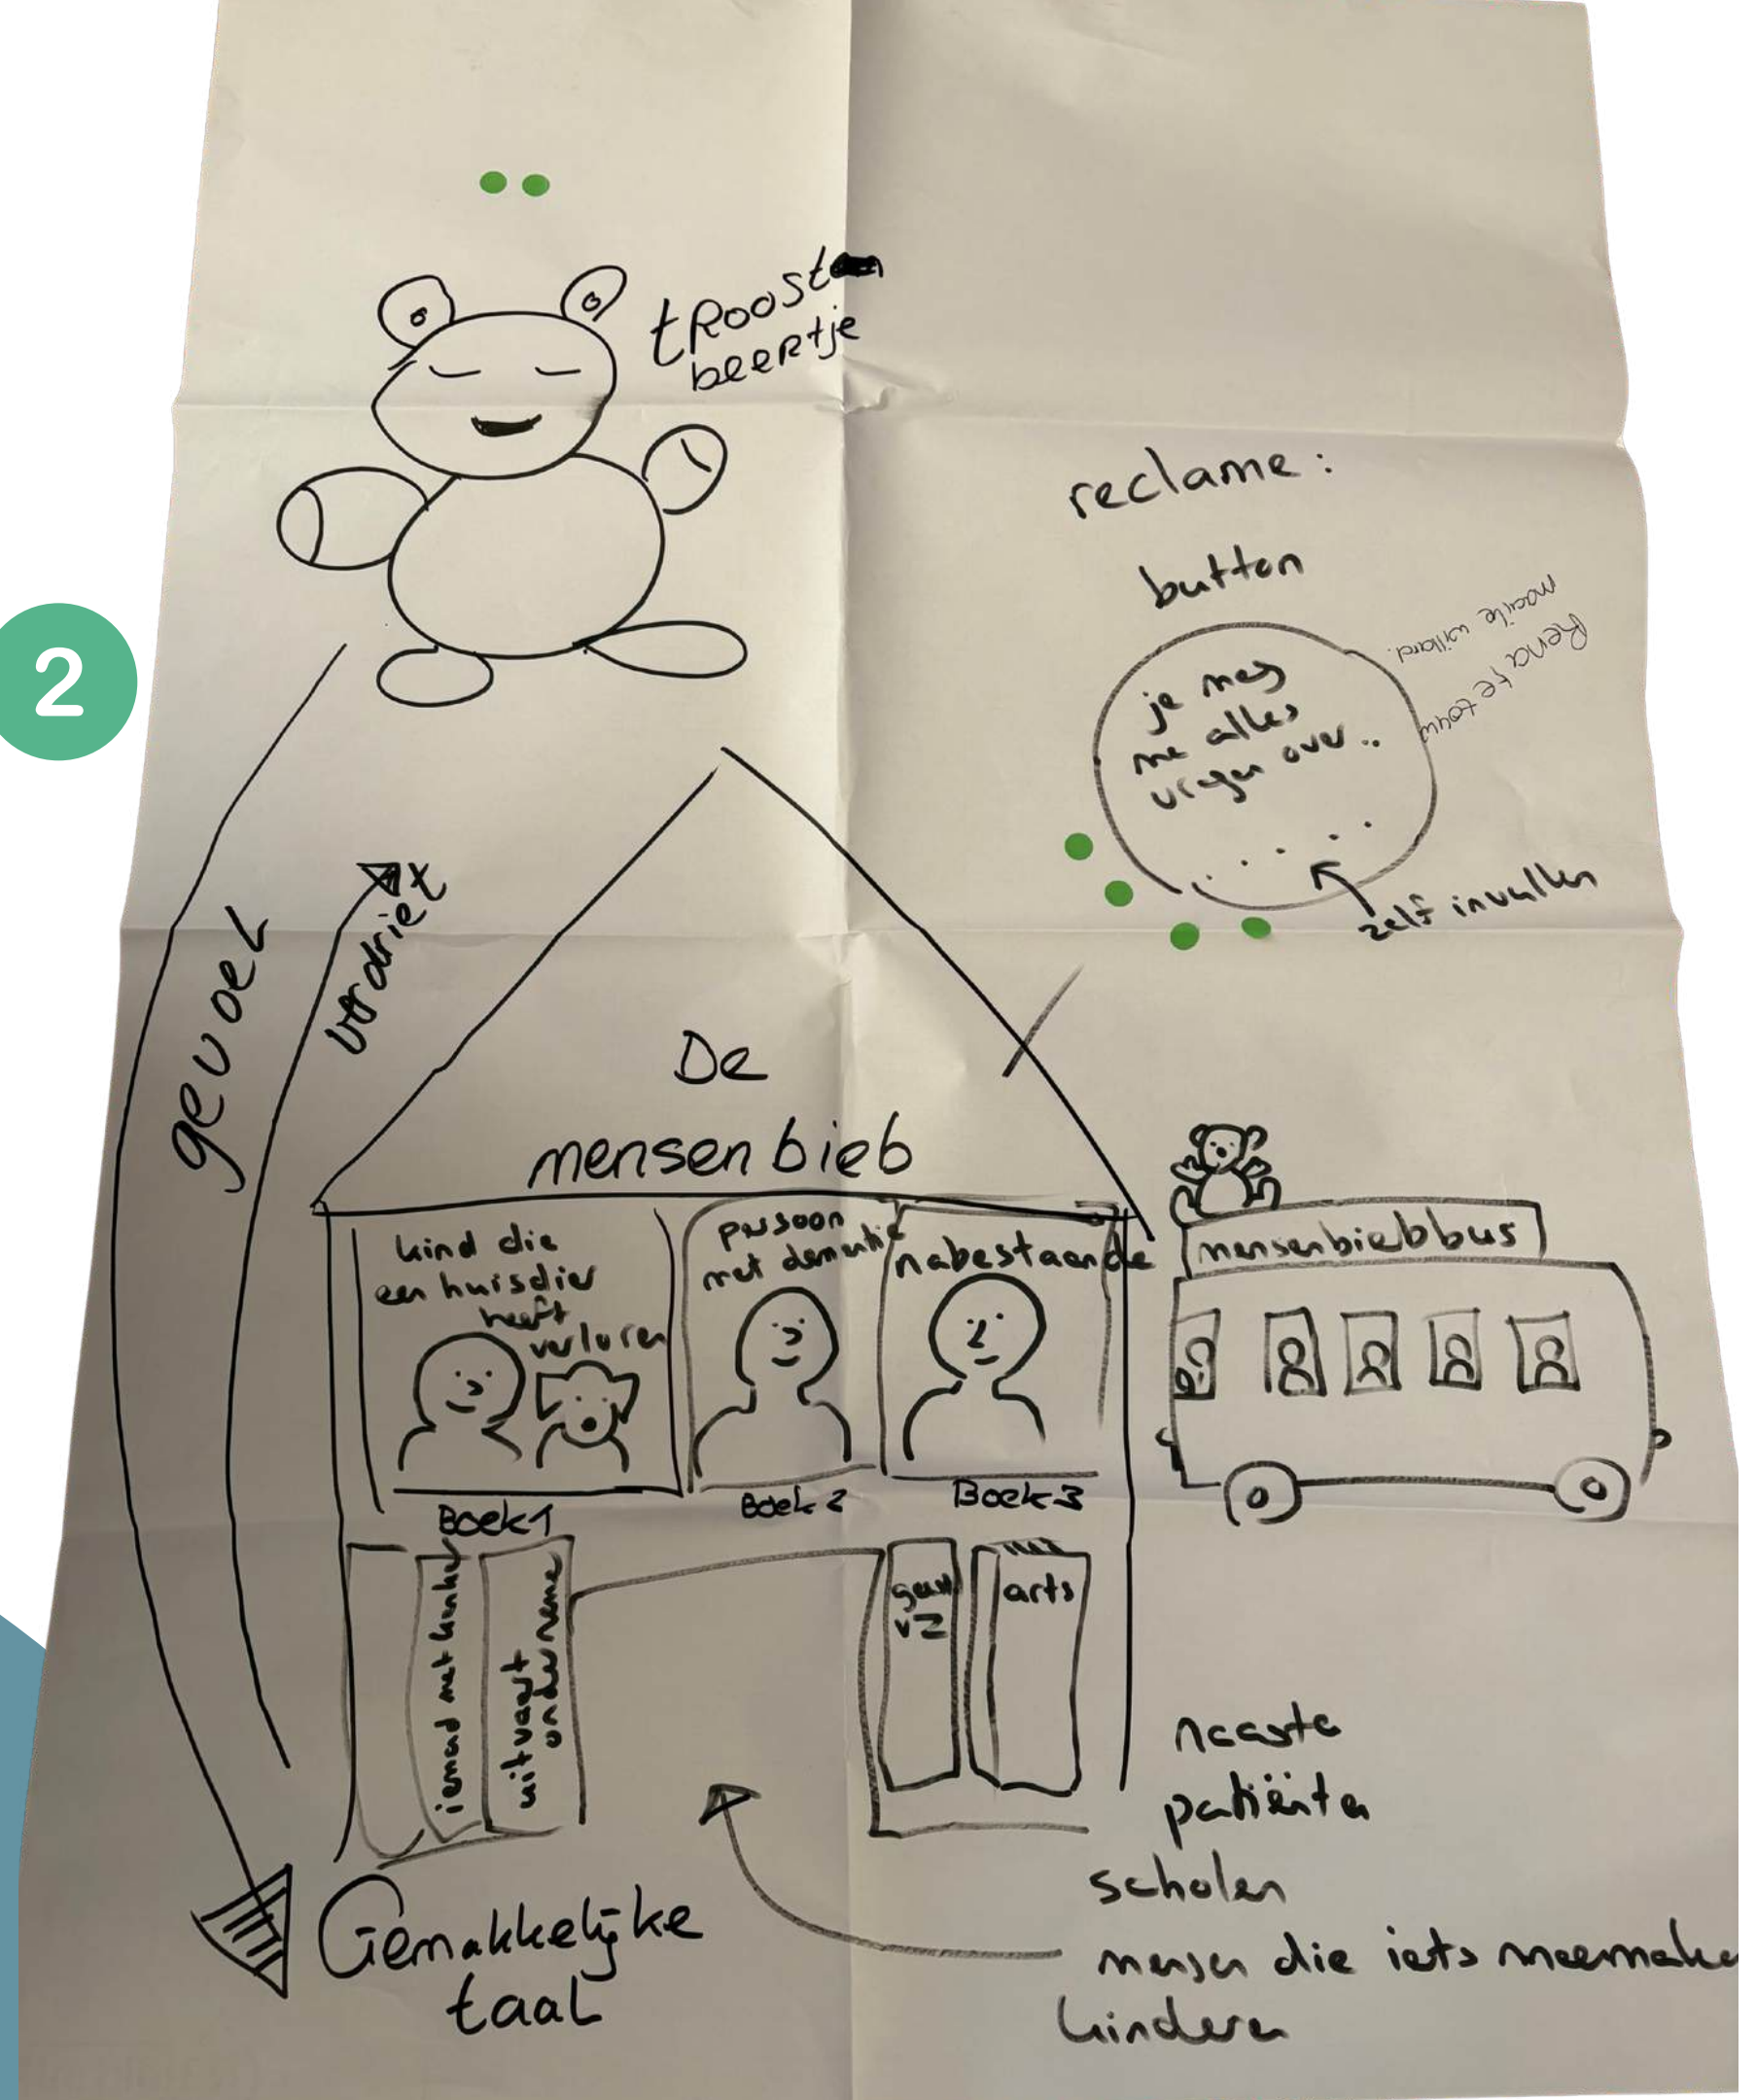 2
troost
beertje
reclame:
button
je mag
me alles
vragen over..
zelf invullen
gevoel
verdriet
De
mensenbieb
kind die
een huisdier
heeft
verloren
persoon
met dementie
nabestaande
mensenbiebbus
Boek 1
Boek 2
Boek 3
iemand met kanker
uitvaart
onderneme
vz
arts
naaste
patiënten
scholen
mensen die iets meemake
kinderen
Gemakkelijke
taal